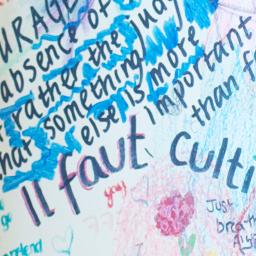 URAGE
absence of
rather the judg
that something
else is more
important
than f
Il faut culti
you
Just
breathe
pretend